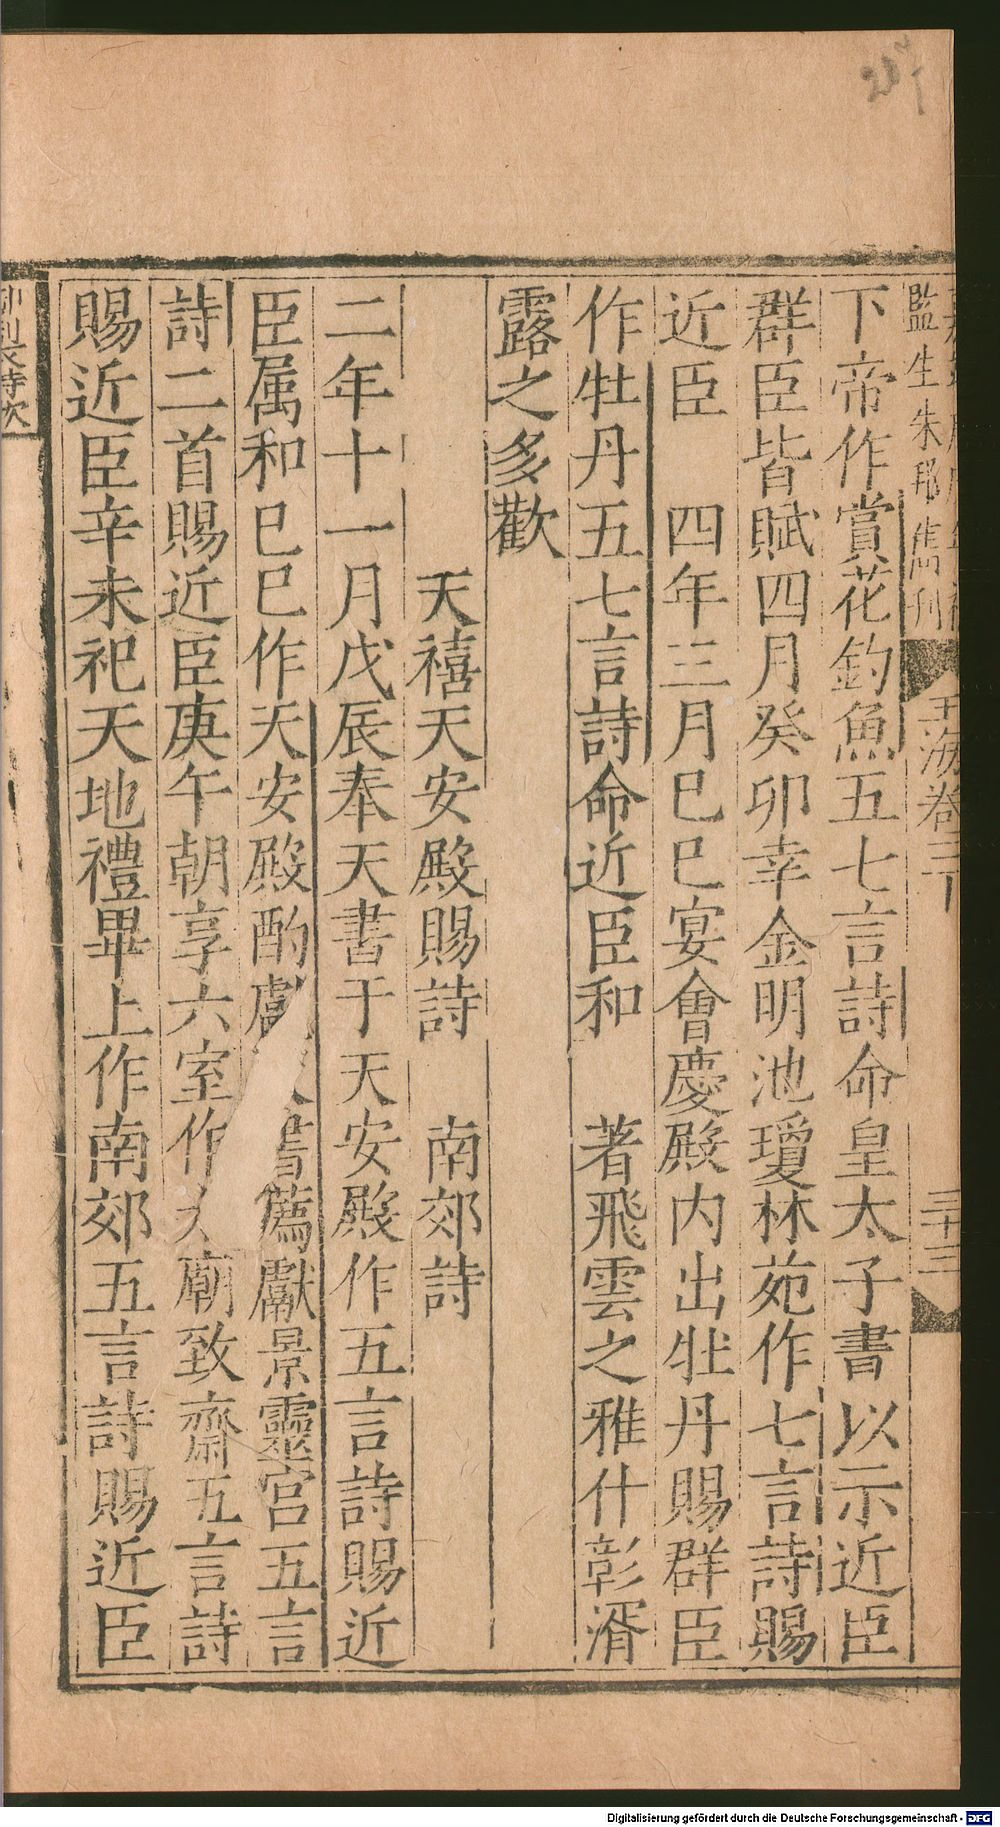 監生朱邦儁刊
玉海卷三十
三十三
下帝作賞花釣魚五七言詩命皇太子書以示近臣
群臣皆賦四月癸卯幸金明池瓊林苑作七言詩賜
近臣　四年三月巳巳宴會慶殿内出牡丹賜群臣
作牡丹五七言詩命近臣和　著飛雲之雅什彰湑
露之多歡
天禧天安殿賜詩　南郊詩
二年十一月戊辰奉天書于天安殿作五言詩賜近
臣属和巳巳作天安殿酌獻書薦獻景靈宮五言
詩二首賜近臣庚午朝享六室作廟致齋五言詩
賜近臣辛未祀天地禮畢上作南郊五言詩賜近臣
Digitalisierung gefördert durch die Deutsche Forschungsgemeinschaft - DFG